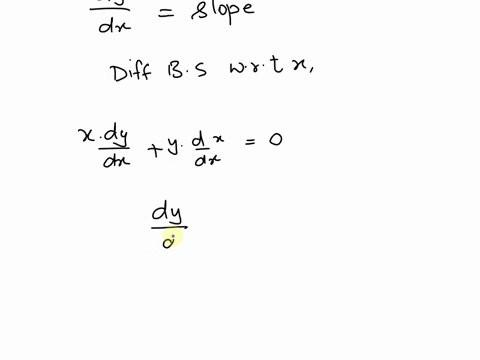 dy/dx = Slope
Diff B.S w.r.t x,
x.dy/dx + y.d/dx x = 0
dy/d